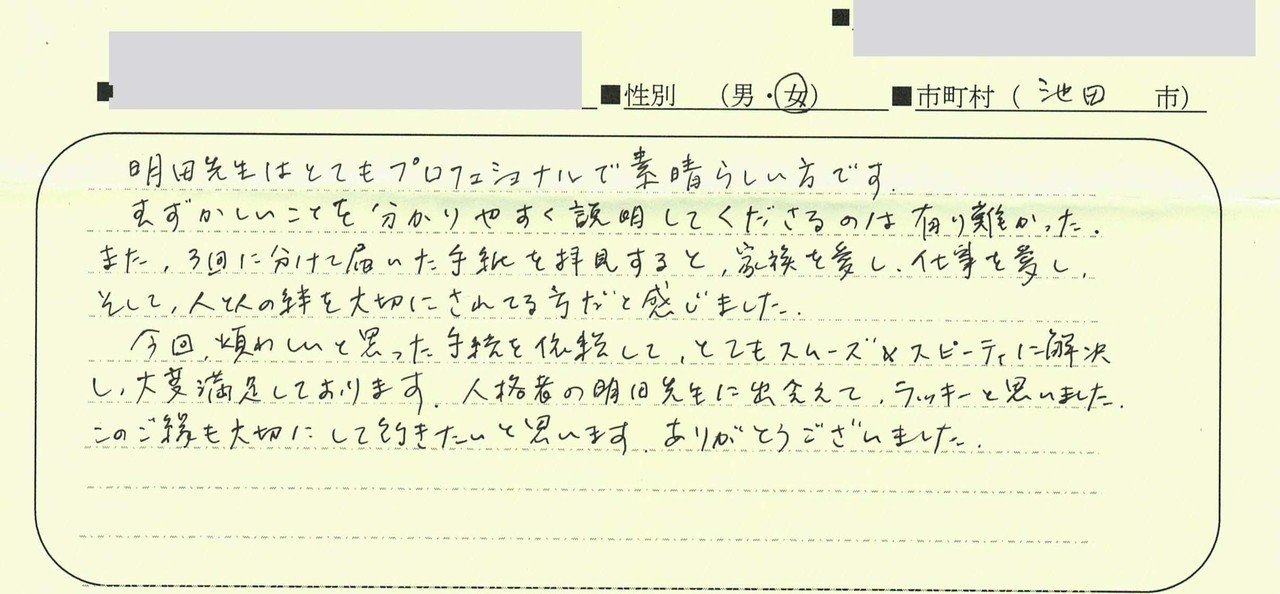 ■性別 (男・女) ■市町村 ( 池田 市)
明田先生はとてもプロフェショナルで素晴らしい方です.
むずかしいことを分かりやすく説明してくださるのは有り難かった.
また, 3回に分けて届いた手紙を拝見すると, 家族を愛し, 仕事を愛し,
そして, 人と人の絆を大切にされてる方だと感じました.
今回, 煩わしいと思った手続を依頼して, とてもスムーズ&スピーディに解決
し, 大変満足しております. 人格者の明田先生に出会えて, ラッキーと思いました.
このご縁も大切にして行きたいと思います. ありがとうございました.